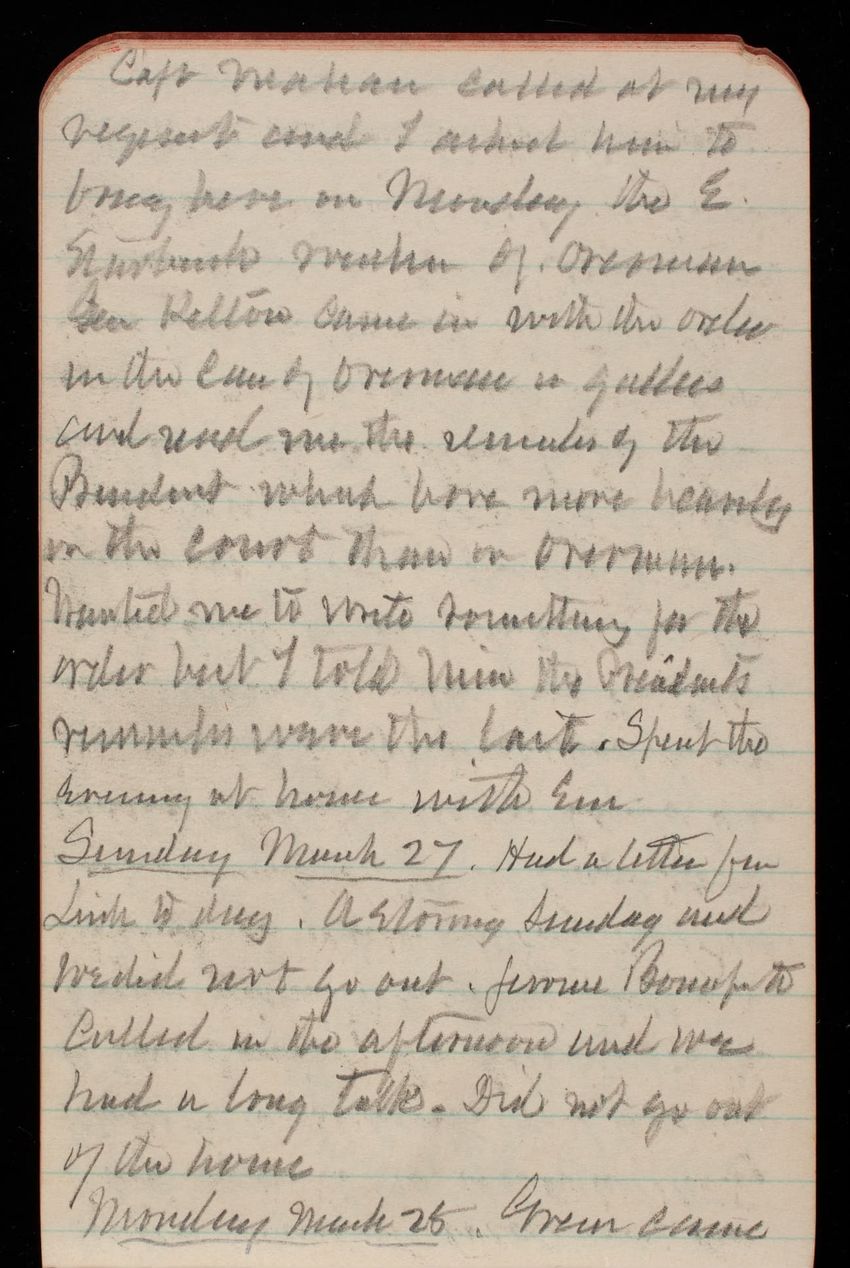 Capt Meahan called at my
request and I asked him to
bring here on Monday the E.
Starbuck of Overman
Gen Kelton came in with the order
in the Case of Overman in galleys
and read me the remarks of the
President which bore more heavily
on the Court than on Overman.
Wanted me to write something for the
order but I told him the Presidents
remarks were the last. Spent the
evening at home with Em
Sunday March 27. Had a letter from
to day. A stormy Sunday and
we did not go out. Jerome Bonaparte
Called in the afternoon and we
had a long talk. Did not go out
of the house
Monday March 28. Green came